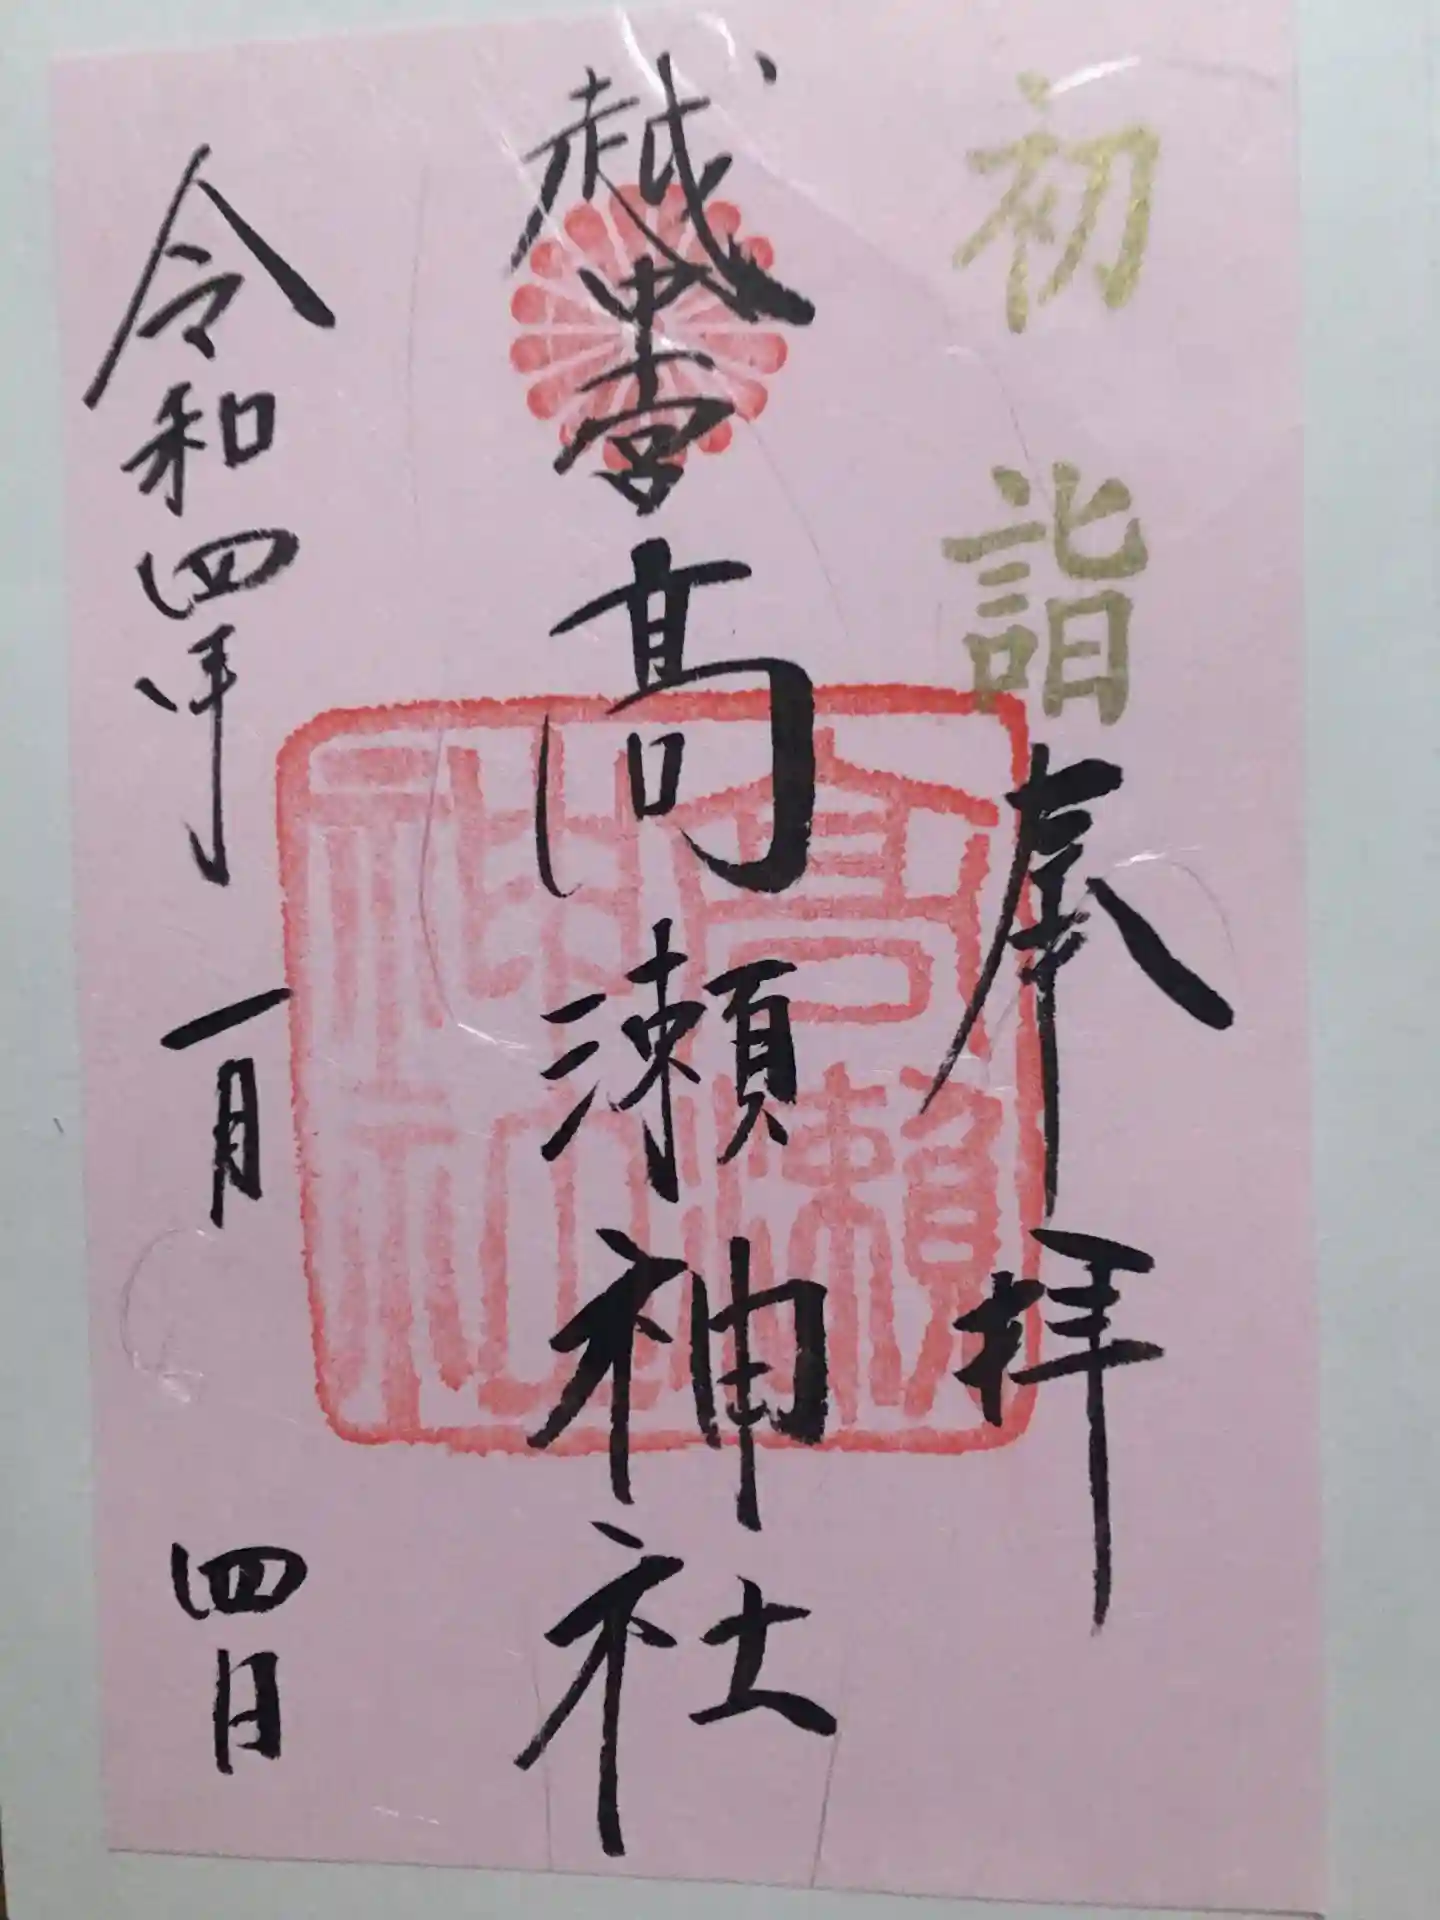 初詣
奉拝
越中一宮高瀬神社
高瀬
神社
令和四年一月四日